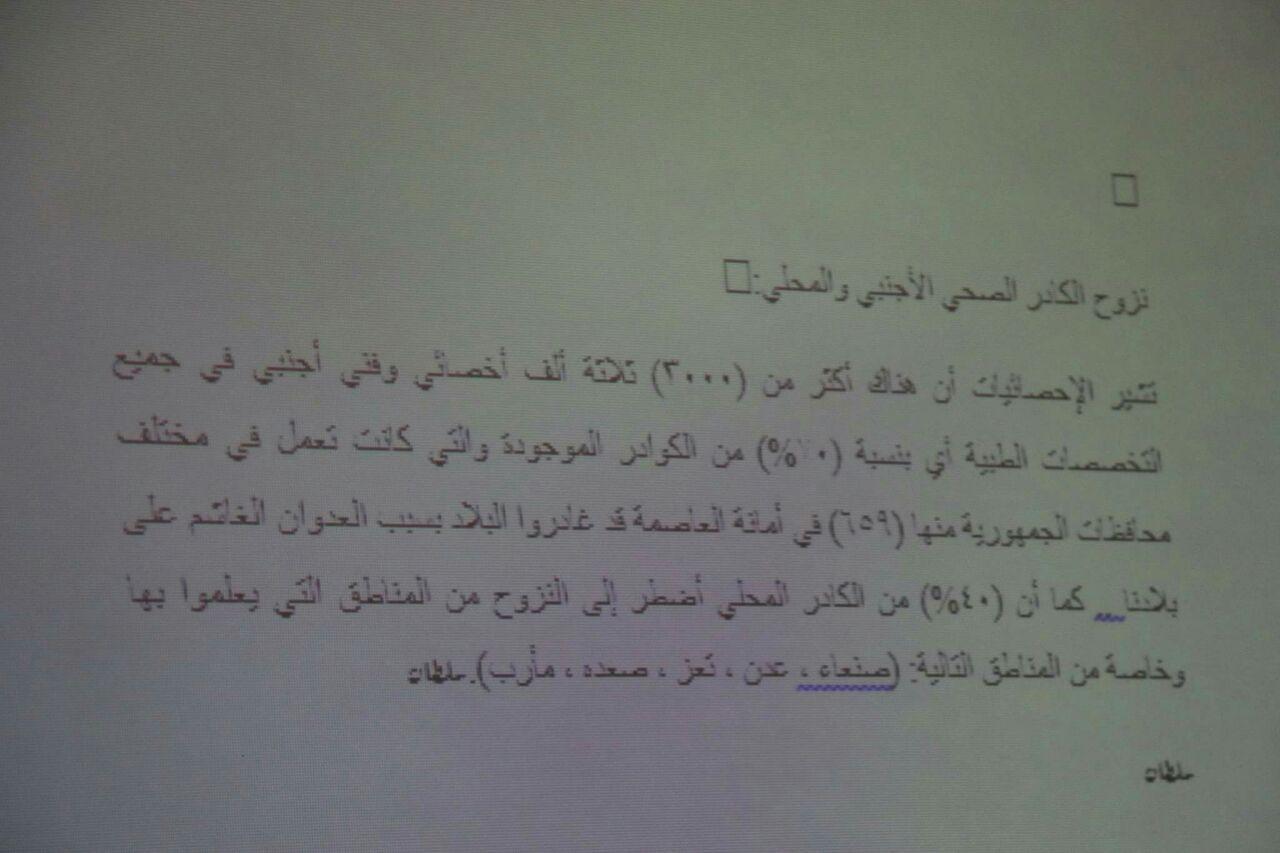 نزوح الكادر الصحي الأجنبي والمحلي:
تشير الإحصائيات أن هناك أكثر من (٣٠٠٠) ثلاثة ألف أخصائي وفني أجنبي في جميع
التخصصات الطبية أي بنسبة من الكوادر الموجودة والتي كانت تعمل في مختلف
محافظات الجمهورية منها (٦٥٩) في أمانة العاصمة قد غادروا البلاد بسبب العدوان الغاشم على
بلادنا كما أن (٤٠%) من الكادر المحلي أضطر إلى النزوح من المناطق التي يعلموا بها
وخاصة من المناطق التالية: (صنعاء ، عدن ، تعز ، صعده ، مأرب). سلطان
سلطان